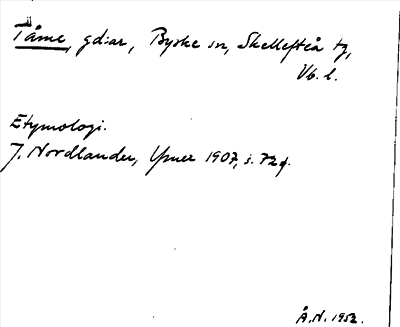 Tåme, gdar, Byske sn, Skellefteå tg,
Vb. l.
Etymologi.
J. Nordlander, Ymer 1907, s. 72 f.
Å.N. 1952.